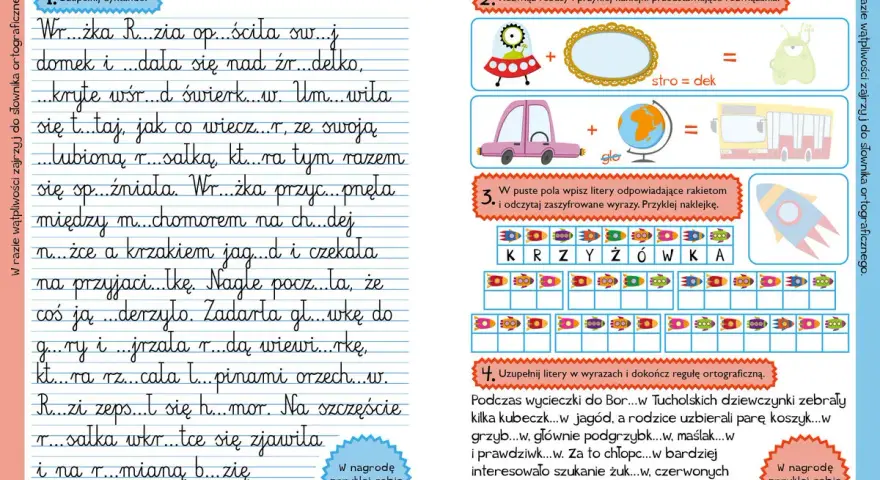 W razie wątpliwości zajrzyj do słownika ortograficznego.
1.
Wr...żka R...zia op...ściła sw...j
domek i ...dała się nad źr...dełko,
...kryte wśr...d świerk...w. Um...wiła
się t...taj, jak co wiecz...r, ze swoją
...lubioną r...sałką, kt...ra tym razem
się op...źniała. Wr...żka przyc...pnęła
między m...chomorem na ch...dej
n...żce a krzakiem jag...d i czekała
na przyjaci...łkę. Nagle pocz...ła, że
coś ją ...derzyło. Zadarła gł...wkę do
g...ry i ...jrzała r...dą wiewi...rkę,
kt...ra rz...cała ł...pinami orzech...w.
R...zi zeps...ł się h...mor. Na szczęście
r...sałka wkr...tce się zjawiła
i na r...mianą b...zię
W nagrodę
2.
+
=
stro = dek
+
=
glo
3. W puste pola wpisz litery odpowiadające rakietom
i odczytaj zaszyfrowane wyrazy. Przyklej naklejkę.
K R Z Y Ż Ó W K A
4. Uzupełnij litery w wyrazach i dokończ regułę ortograficzną.
Podczas wycieczki do Bor...w Tucholskich dziewczynki zebrały
kilka kubeczk...w jagód, a rodzice uzbierali parę koszyk...w
grzyb...w, głównie podgrzybk...w, maślak...w
i prawdziwk...w. Za to chłopc...w bardziej
interesowało szukanie żuk...w, czerwonych
W nagrodę
W razie wątpliwości zajrzyj do słownika ortograficznego.